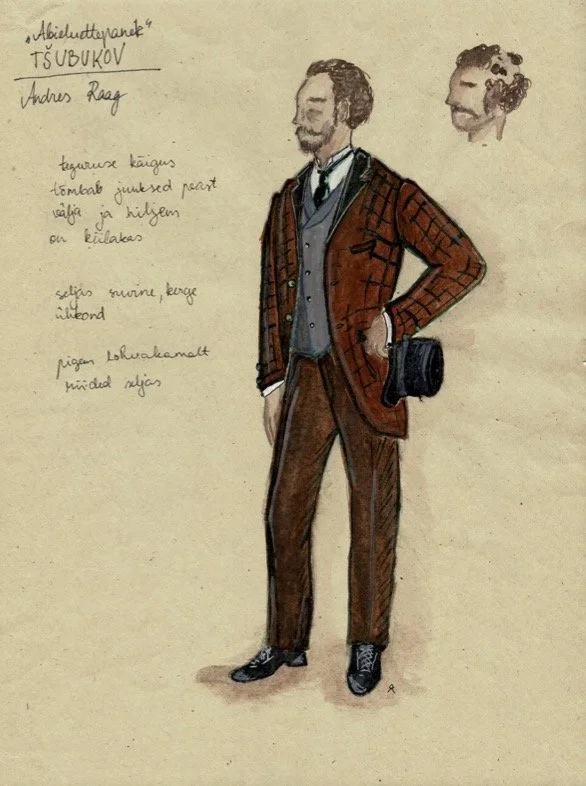 „Abieluettepanek“
TŠUBUKOV
Andres Raag
tegevuse käigus
tõmbab juuksed peast
välja ja hiljem
on kiilakas
seljas suvine, kerge
ülikond
pigem lohvakamalt
riided seljas